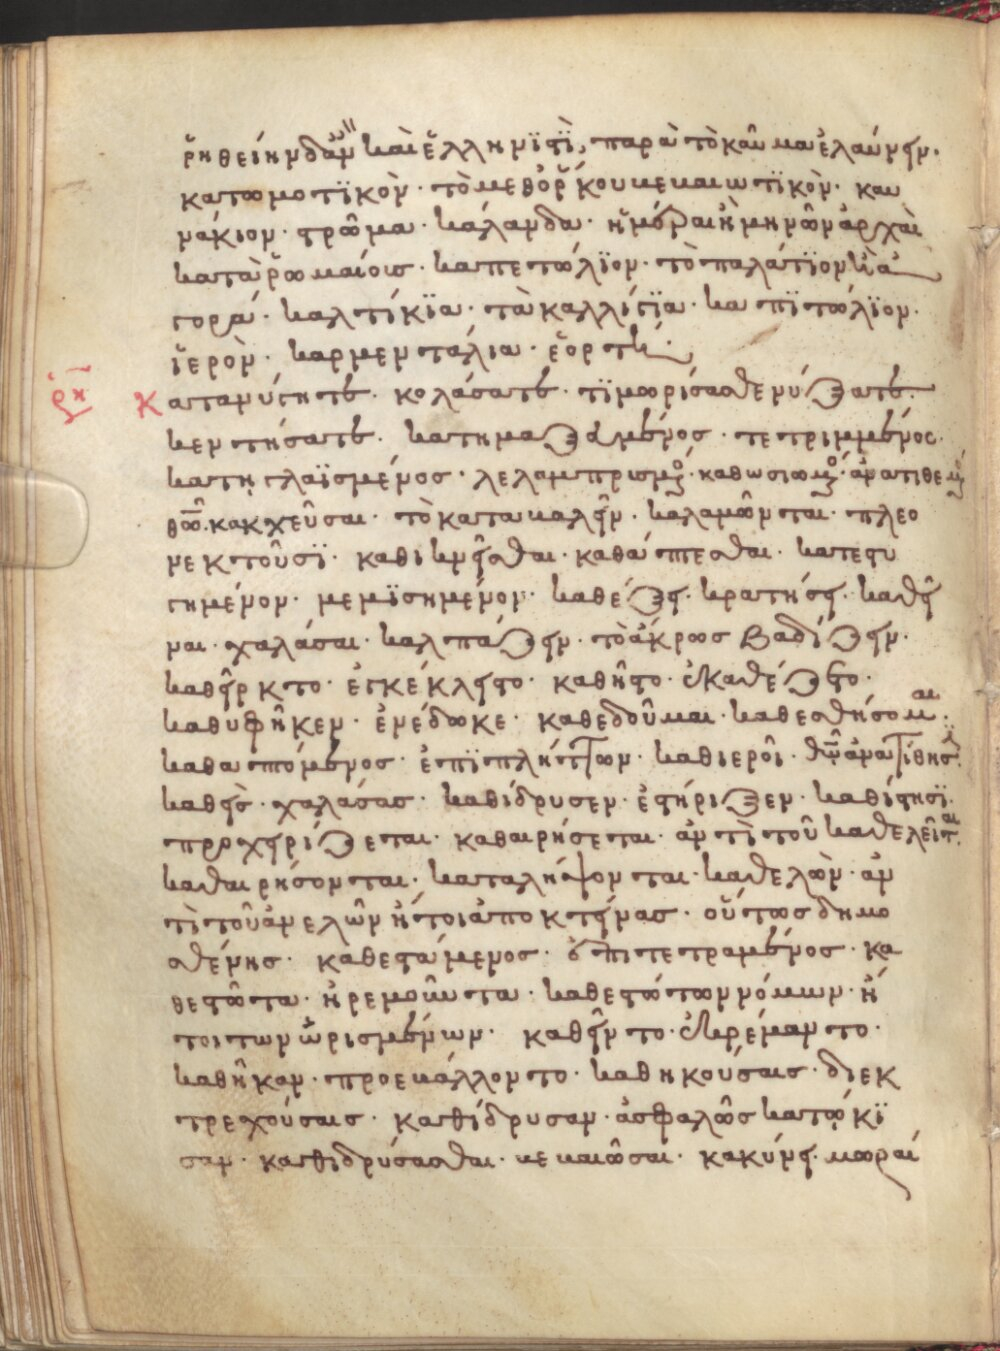 ῥηθείην δ' ἂν καὶ ἑλληνϊστϊ, παρὰ τὸ καῦμα ἐλαύνειν.
κατωμοτϊκὸν· τὸ μεθ ὅρκου κεκαιωτϊκὸν· καυ
νάκιον· στρῶμα· κάλανδα· ἡμέραι ἢ μηνῶν ἀρχαὶ
κατὰ ῥωμαίοις· καπετώλϊον· τὸ παλάτϊον
τορά· καλτίκϊα· τὰ καλλίστϊα· καπϊτώλϊον·
ἱερὸν· καρμεντάλια· ἑορτή·
ρη Κατανύσητε· κολάσατε· τϊμωρίσασθε νύξατε·
κεντήσατε· κατημαξευμένος· τετριμμένος·
κατηγλαϊσμένος· λελαμπρισμένος· καθωσιωμένος· ἀνατιθεμένος
θεῶ. κακχεῦσαι· τὸ κατακαλεῖν· καλαμῶνται· πλεο
νεκτοῦσϊ· καθικνεῖσθαι· καθάπτεσθαι· κατεστυ
γημένον· μεμϊσημένον· καθέξει· κρατήσει· καθεῖ
ναι· χαλάσαι· καλπάζειν· τὸ ἄκρως βαδίζειν·
καθεῖρκτο· ἐγκέκλειστο· καθῆστο· ἐκαθέζετο·
καθυφῆκεν· ἐνέδωκε· καθεδοῦμαι· καθεσθήσομαι·
καθαπτόμενος· ἐπϊπλήττων· καθιεροῖ· θεῶ ἀνατίθησϊ
καθεὶς· χαλάσας· καθίδρυσεν· ἐστήριξεν· καθίστησϊ
προχειρίζεται· καθαιρήσεται· ἀντὶ τοῦ καθελεῖται
καθαιρήσονται· καταλήψονται· καθελὼν· ἀν
τὶ τοῦ ἀνελὼν ἤτοι ἀποκτείνας· οὕτως δημο
σθένης· καθεστάμενος· ὁ ἐπιτετραμμένος· κα
θεστῶτα· ἠρεμοῦντα· καθεστώτων νόμων· ἤ
τοι των ὡρισμένων· καθεῖντο· ἐκρέμαντο·
καθῆκαν· προεκάλλοντο· καθηκούσαις· διεκ
τρεχούσαις· καθίδρυσαν· ἀσφαλῶς κατῴκϊ
σαν· καθιδρύσασθαι· κεκαιῶσαι· κακύνει· μωραί